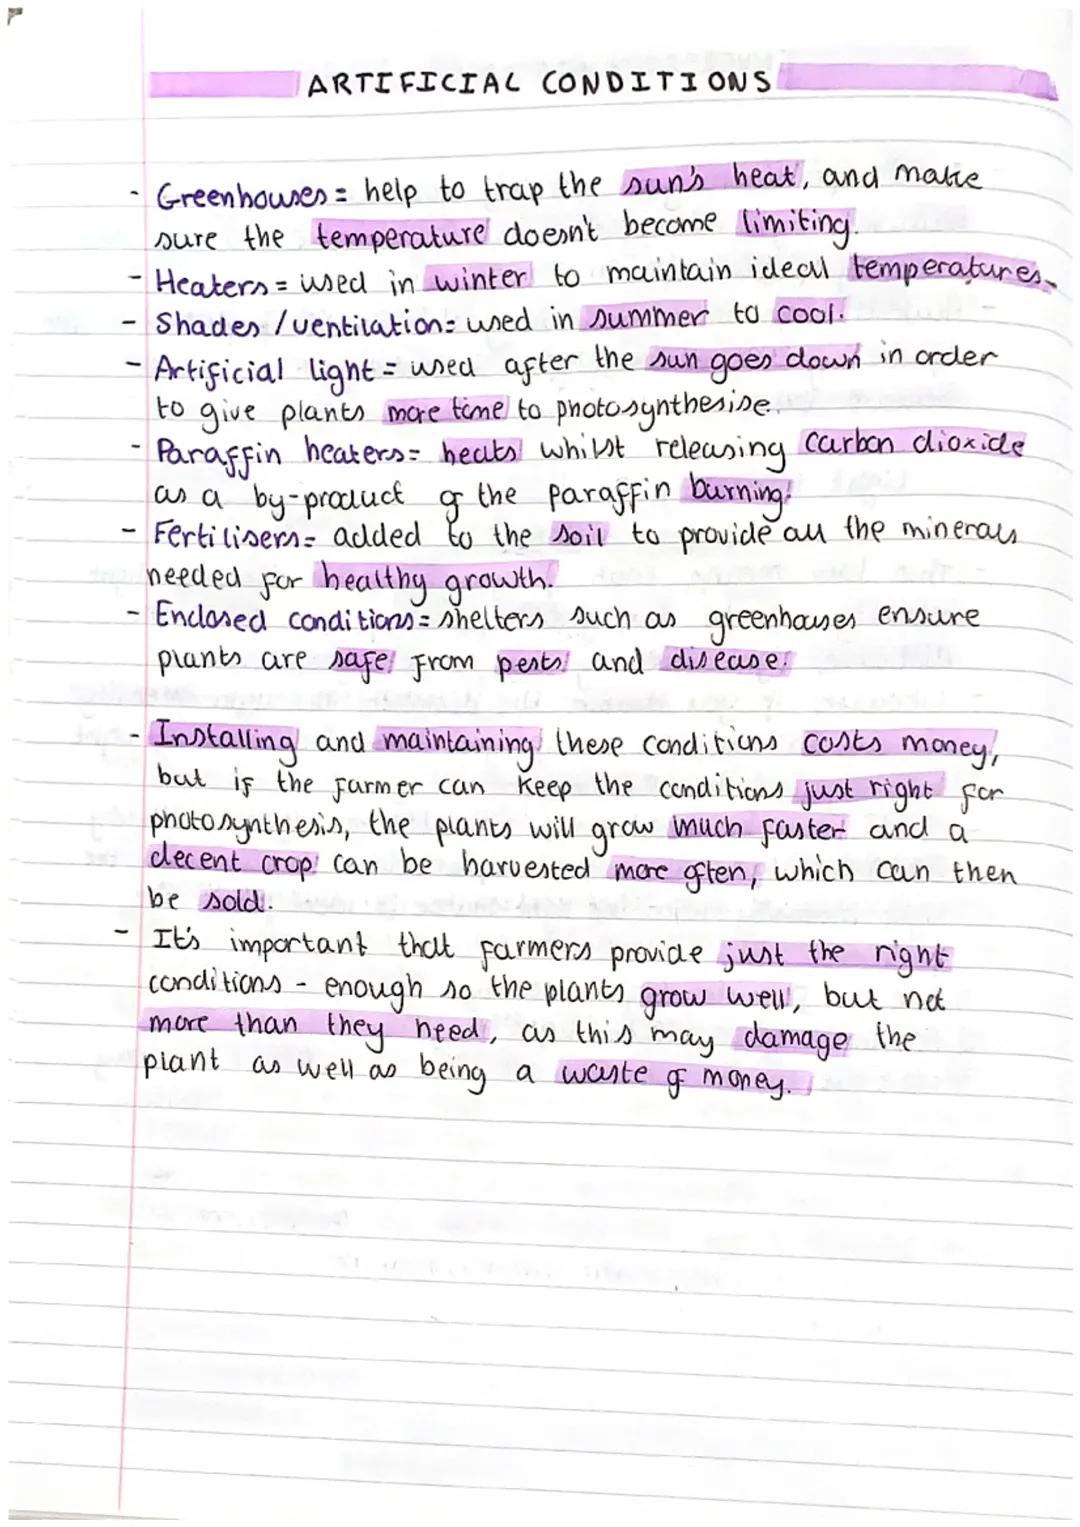 ARTIFICIAL CONDITIONS
- Greenhouses = help to trap the sun's heat, and make
sure the temperature doesn't become limiting.
- Heaters = used in winter to maintain ideal temperatures.
- Shades / ventilation = used in summer to cool.
- Artificial light = used after the sun goes down in order
to give plants more time to photosynthesise.
- Paraffin heaters = heats whilst releasing carbon dioxide
as a by-product of the paraffin burning.
- Fertilisers = added to the soil to provide all the minerals
needed for healthy growth.
- Enclosed conditions = shelters such as greenhouses ensure
plants are safe from pests and disease.
- Installing and maintaining these conditions costs money,
but if the farmer can keep the conditions just right for
photosynthesis, the plants will grow much faster and a
decent crop can be harvested more often, which can then
be sold.
- It's important that farmers provide just the right
conditions - enough so the plants grow well, but not
more than they need, as this may damage the
plant as well as being a waste of money.